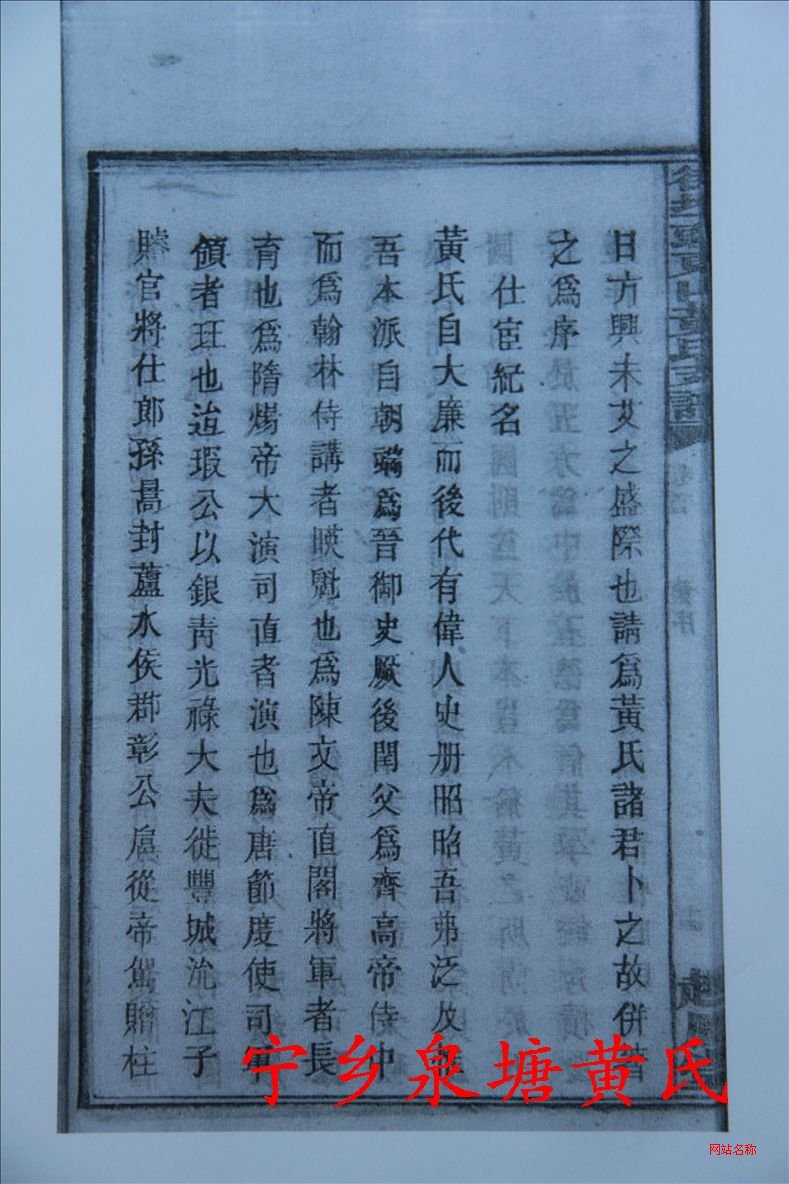 日方興未艾之盛際也請爲黃氏諸君卜之故併
之爲序
仕宦紀名
黃氏自大廉而後代有偉人史册昭昭吾弗泛及
吾本派自朝端爲晉御史厥後閏父爲齊高帝侍中
而爲翰林侍講者暎魁也爲陳文帝直閣將軍者長
育也爲隋煬帝大演司直者演也爲唐節度使司
領者玨也迨瑕公以銀青光祿大夫徙豐城沇江子
賸官將仕郎孫暠封蘆水侯郡彰公扈從帝駕贈柱
黃氏支譜
宁乡泉塘黄氏
网站名称